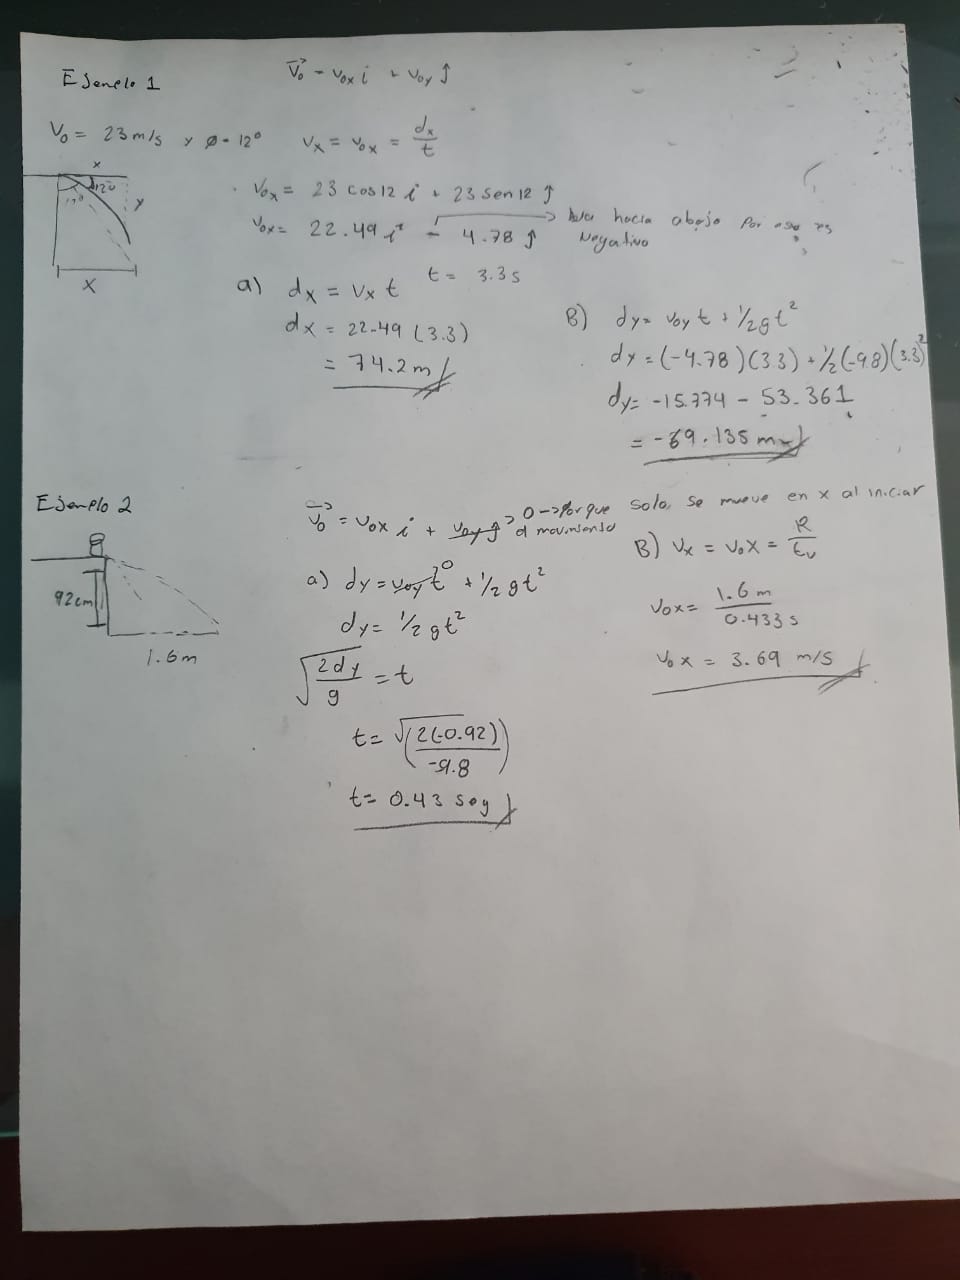 Ejemplo 1
V₀ = vox i + voy ĵ
V₀ = 23 m/s y Ø = 12°
Vx = Vox = dx/t
x
12°
y
x
Vox = 23 cos12 i + 23 sen 12 ĵ
Vox = 22.49 i - 4.78 ĵ → hacia abajo por eso es negativo
t = 3.3 s
a) dx = vx t
dx = 22.49 (3.3)
= 74.2 m
B) dy = voy t + 1/2 g t²
dy = (-4.78)(3.3) + 1/2 (-9.8)(3.3)²
dy = -15.774 - 53.361
= -69.135 m
Ejemplo 2
V₀ = vox i + voy ĵ → 0 → porque solo se mueve en x al iniciar el movimiento
92cm
1.6m
a) dy = voy t + 1/2 g t²
0
dy = 1/2 g t²
√(2dy/g) = t
t = √(2(-0.92)/-9.8)
t = 0.43 seg
B) Vx = Vox = R/tv
Vox = 1.6 m/0.433 s
Vox = 3.69 m/s